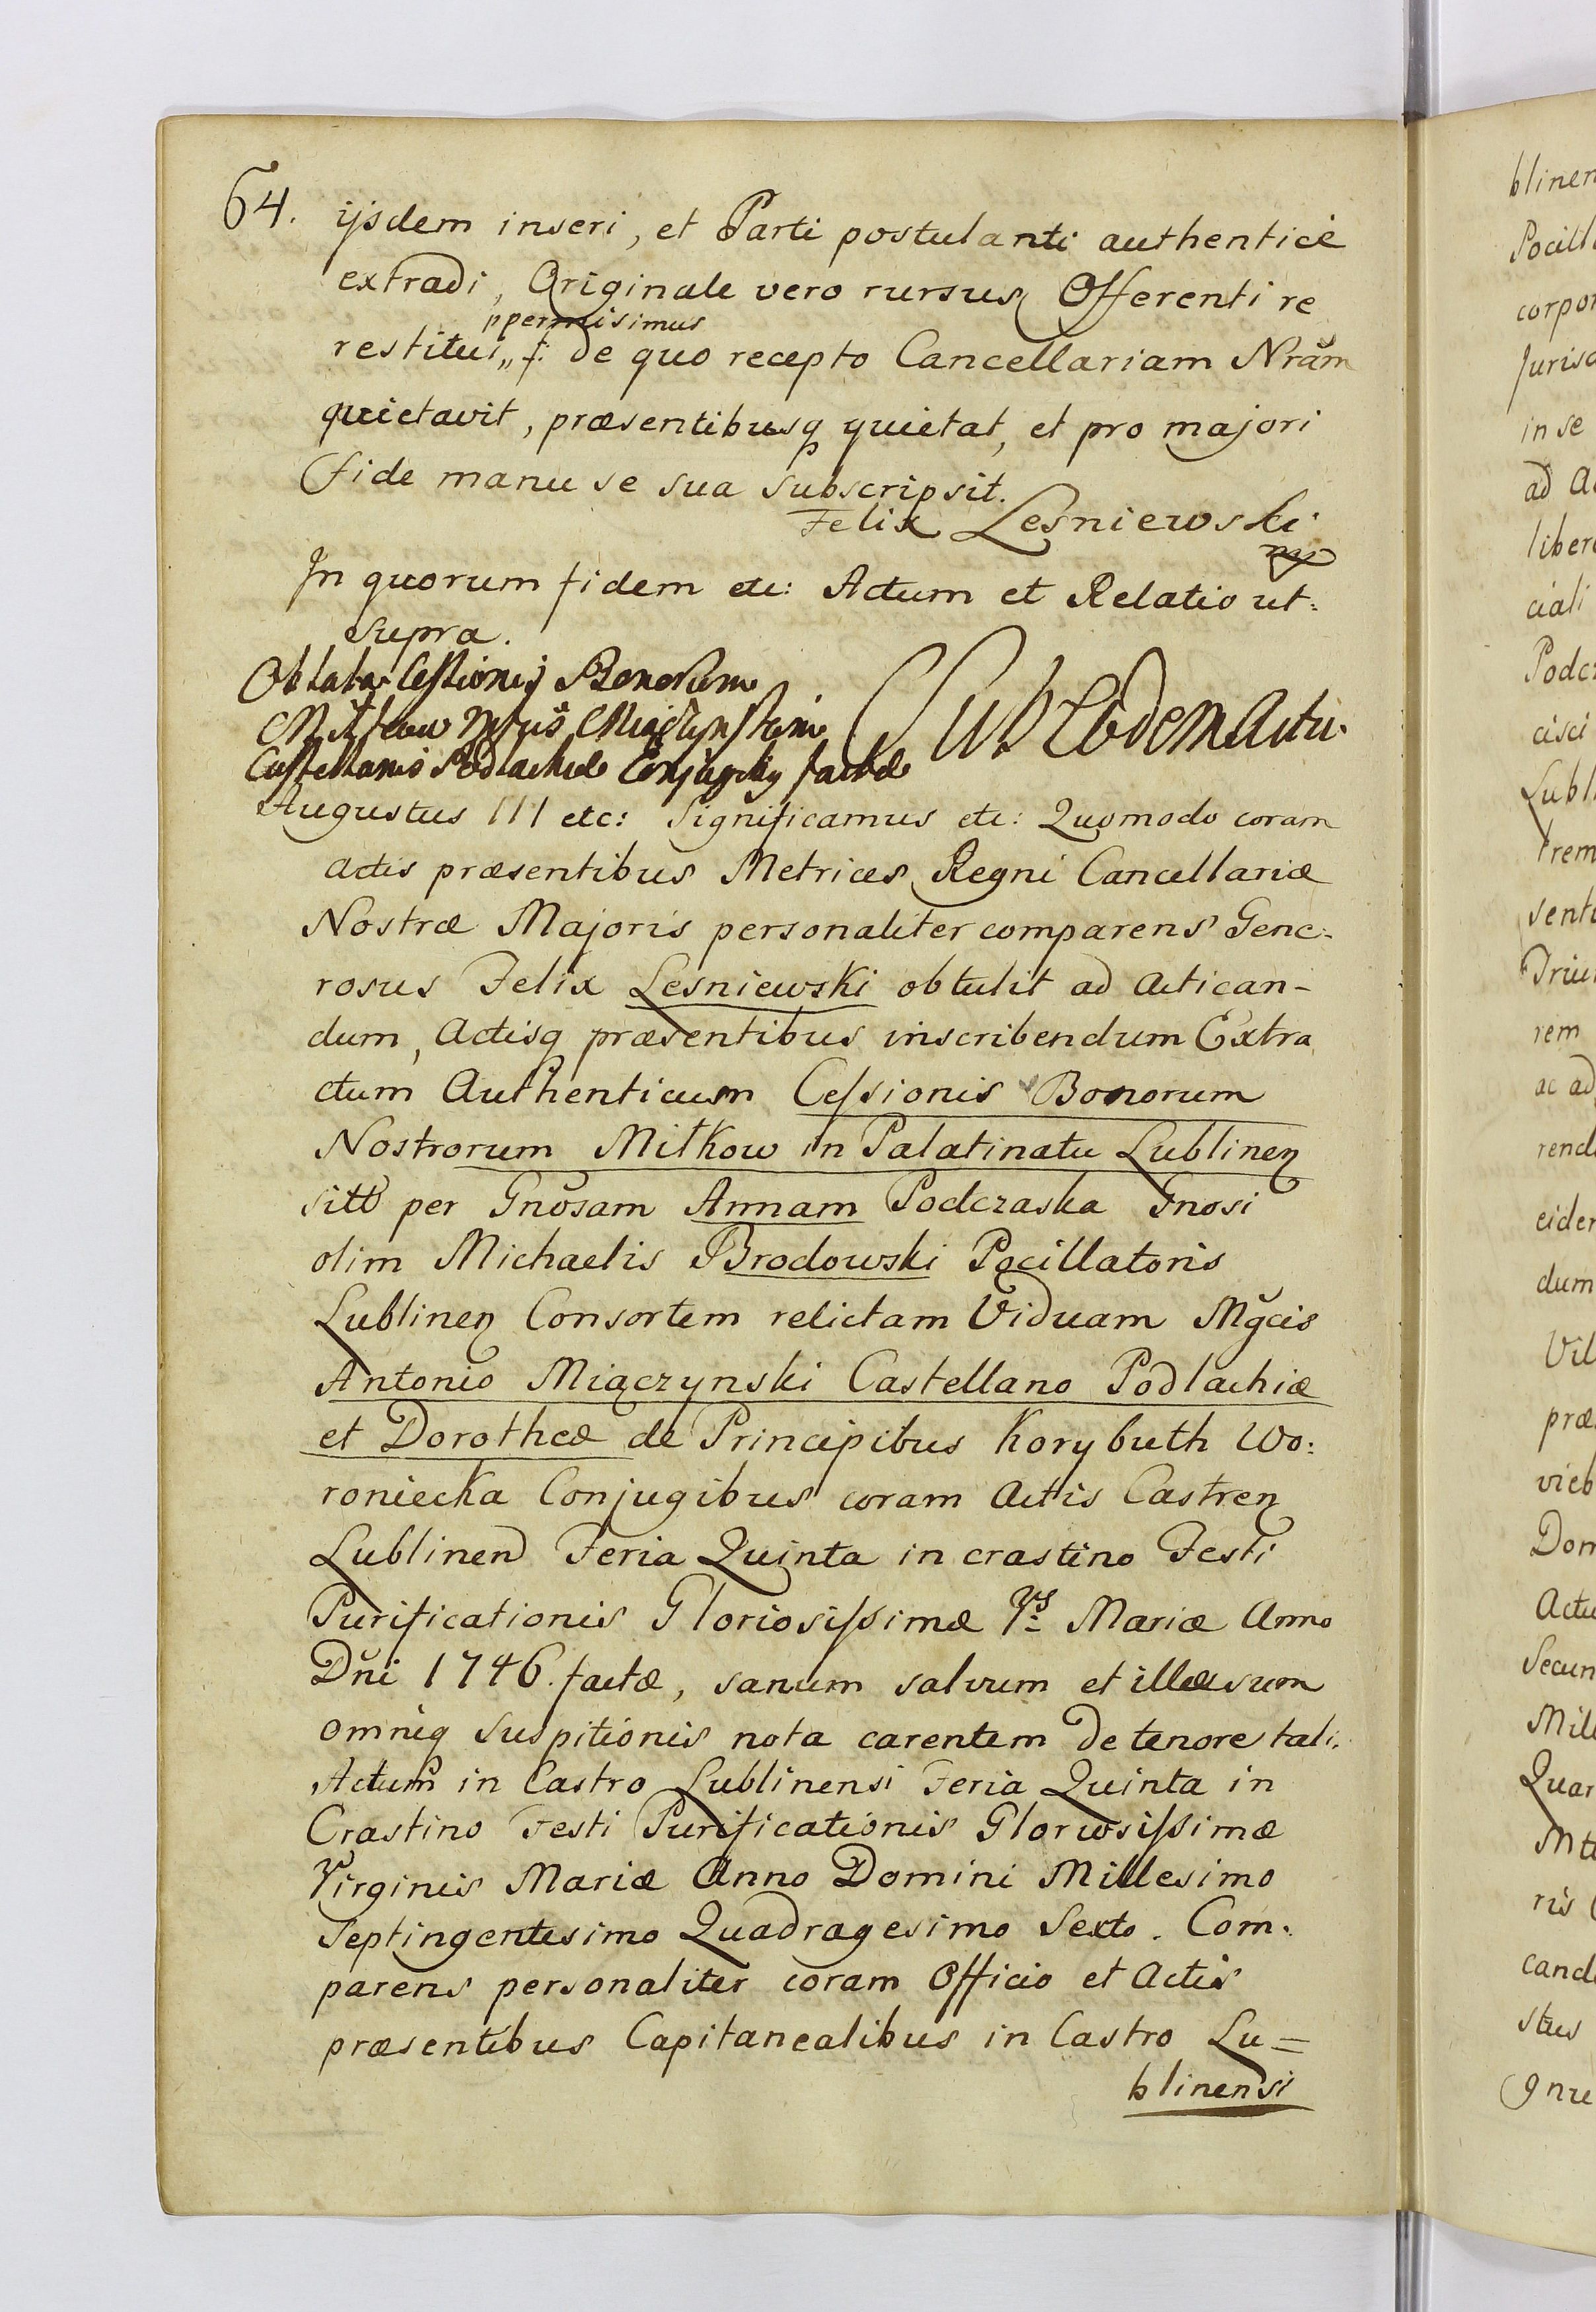 64.
ijsdem inseri, et Parti postulanti authenticè
extradi, Originale vero rursus Offerenti re
ppermisimus
restitui,, f: de quo recepto Cancellariam Nrãm
quietavit, præsentibusq quietat, et pro majori
fide manu se sua subscripsit.
Felix Lesniewski
mp
In quorum fidem etc: Actum et Relatio ut:
supra.
Oblata Cessionis Bonorum
Miłkow Mcis Miączynskim
Castellanis Podlachiæ Conjugibus factæ
Sub Eodem Actu.
Augustus III etc: Significamus etc: Quomodo coram
actis præsentibus Metrices Regni Cancellariæ
Nostræ Majoris personaliter comparens Gene-
rosus Felix Lesniewski obtulit ad actican-
dum, Actisq præsentibus inscribendum Extra
ctum Authenticum Cessionis Bonorum
Nostrorum Miłkow in Palatinatu Lublinen
sitt per Gnõsam Annam Podczaska Gnosi
olim Michaelis Brodowski Pocillatoris
Lublinen Consortem relictam Viduam Mg̃cis
Antonio Miączynski Castellano Podlachiæ
et Dorotheæ de Principibus Korybuth Wo:
roniecka Conjugibus coram Actis Castren
Lublinen Feria Quinta in crastino Festi
Purificationis Gloriosissimæ Vs Mariæ Anno
Dñi 1746. factæ, sanum salvum et illæsum
omniq suspitionis nota carentem de tenore tali.
Actum in Castro Lublinensi Feria Quinta in
Crastino Festi Purificationis Gloriosissimæ
Virginis Mariæ Anno Domini Millesimo
Septingentesimo Quadragesimo Sexto. Com:
parens personaliter coram Officio et Actis
præsentibus Capitanealibus in Castro Lu=
blinensi
blinen
Pocill
corpor
Jurisd
in se
ad A
liber
ciali
Podcz
cisci
Lubl
trem
senti
Triu
rem
ac ad
rend
eider
dum
Vil
præ
vieb
Dom
Actu
Secun
Mill
Quar
ris
cand
stus